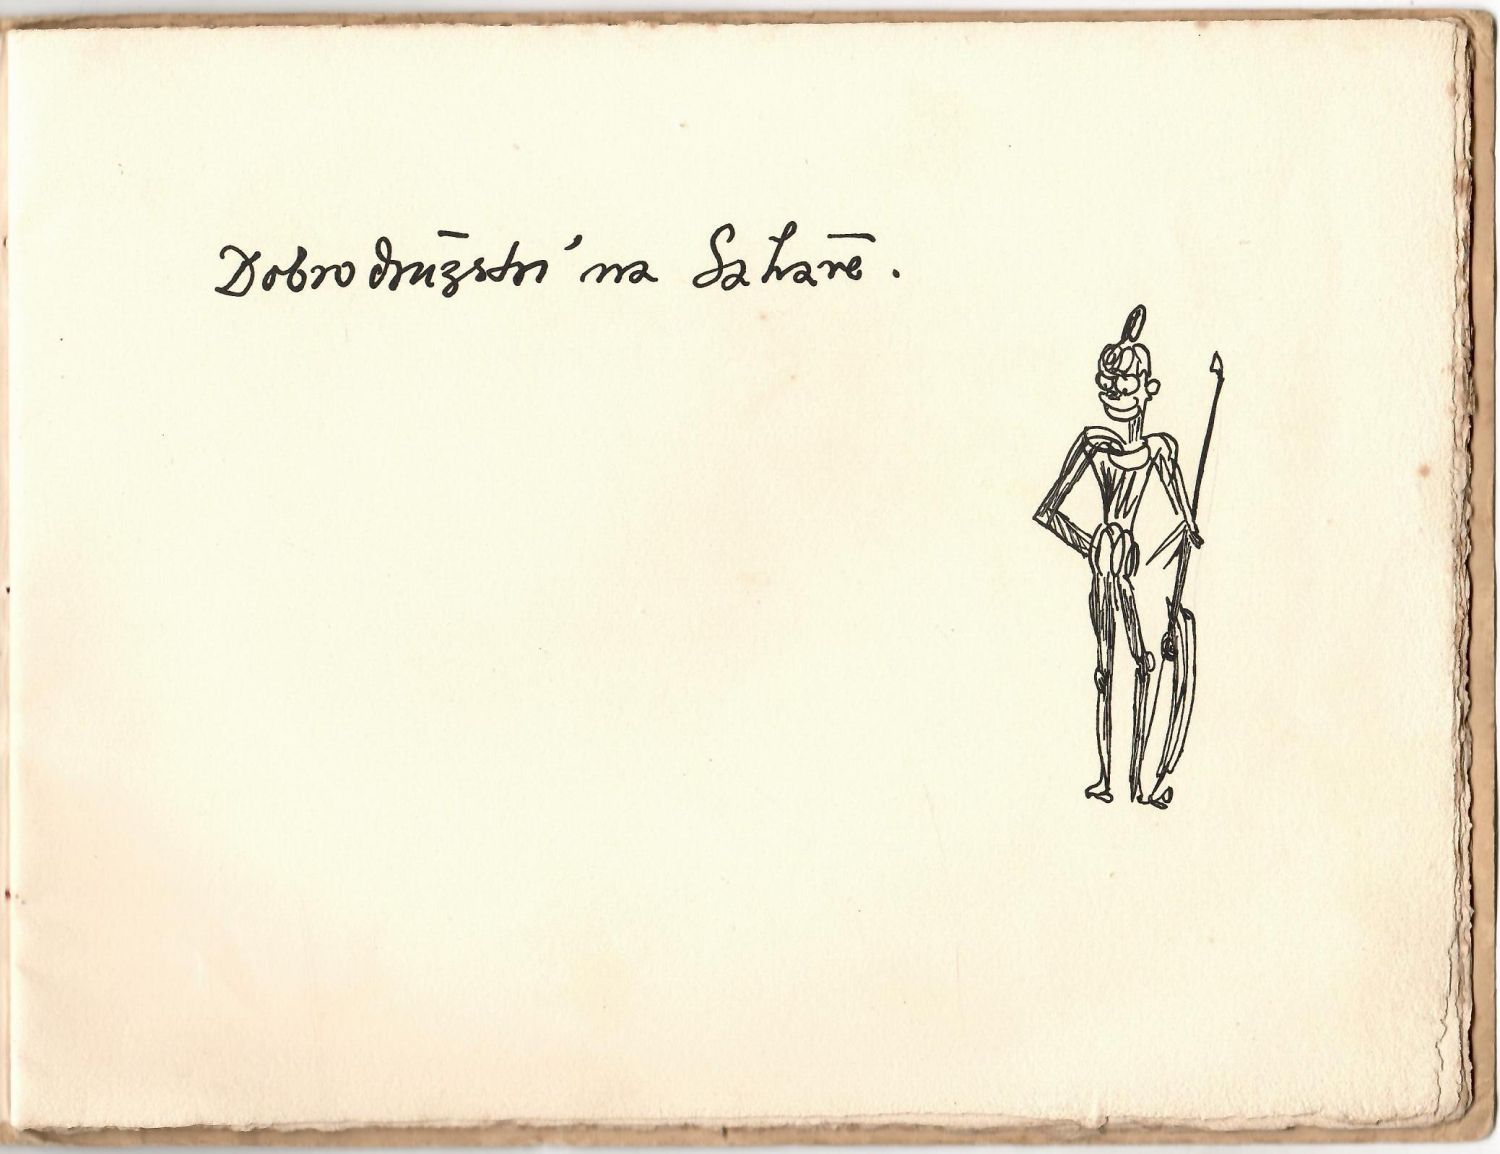 Dobrodružství na Sahaře.